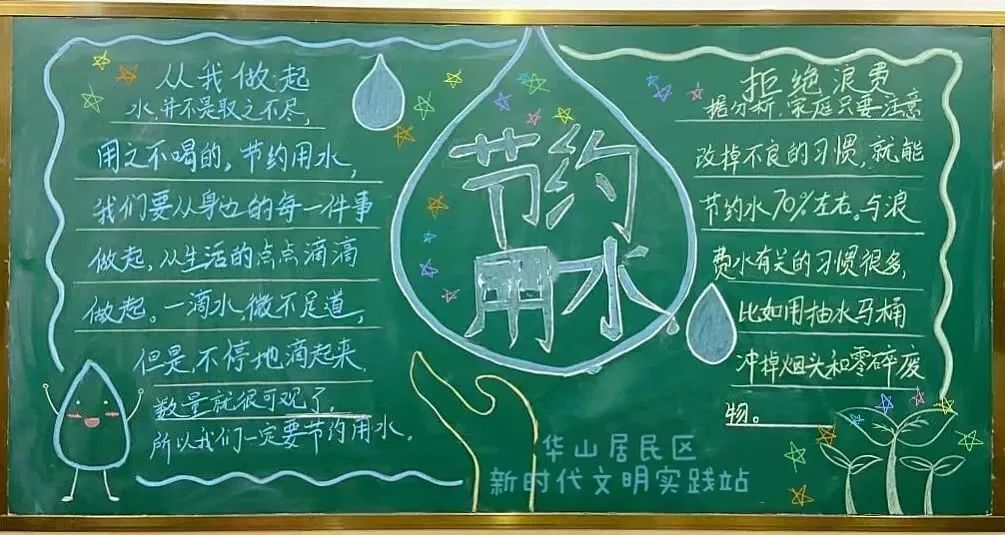 从我做起
水,并不是取之不尽,
用之不喝的。节约用水,
我们要从身边的每一件事
做起,从生活的点点滴滴
做起。一滴水,微不足道,
但是,不停地滴起来,
数量就很可观了,
所以我们一定要节约用水。
节约
用水
拒绝浪费
据分析,家庭只要注意
改掉不良的习惯,就能
节约水70%左右。与浪
费水有关的习惯很多,
比如用抽水马桶
冲掉烟头和零碎废
物。
华山居民区
新时代文明实践站